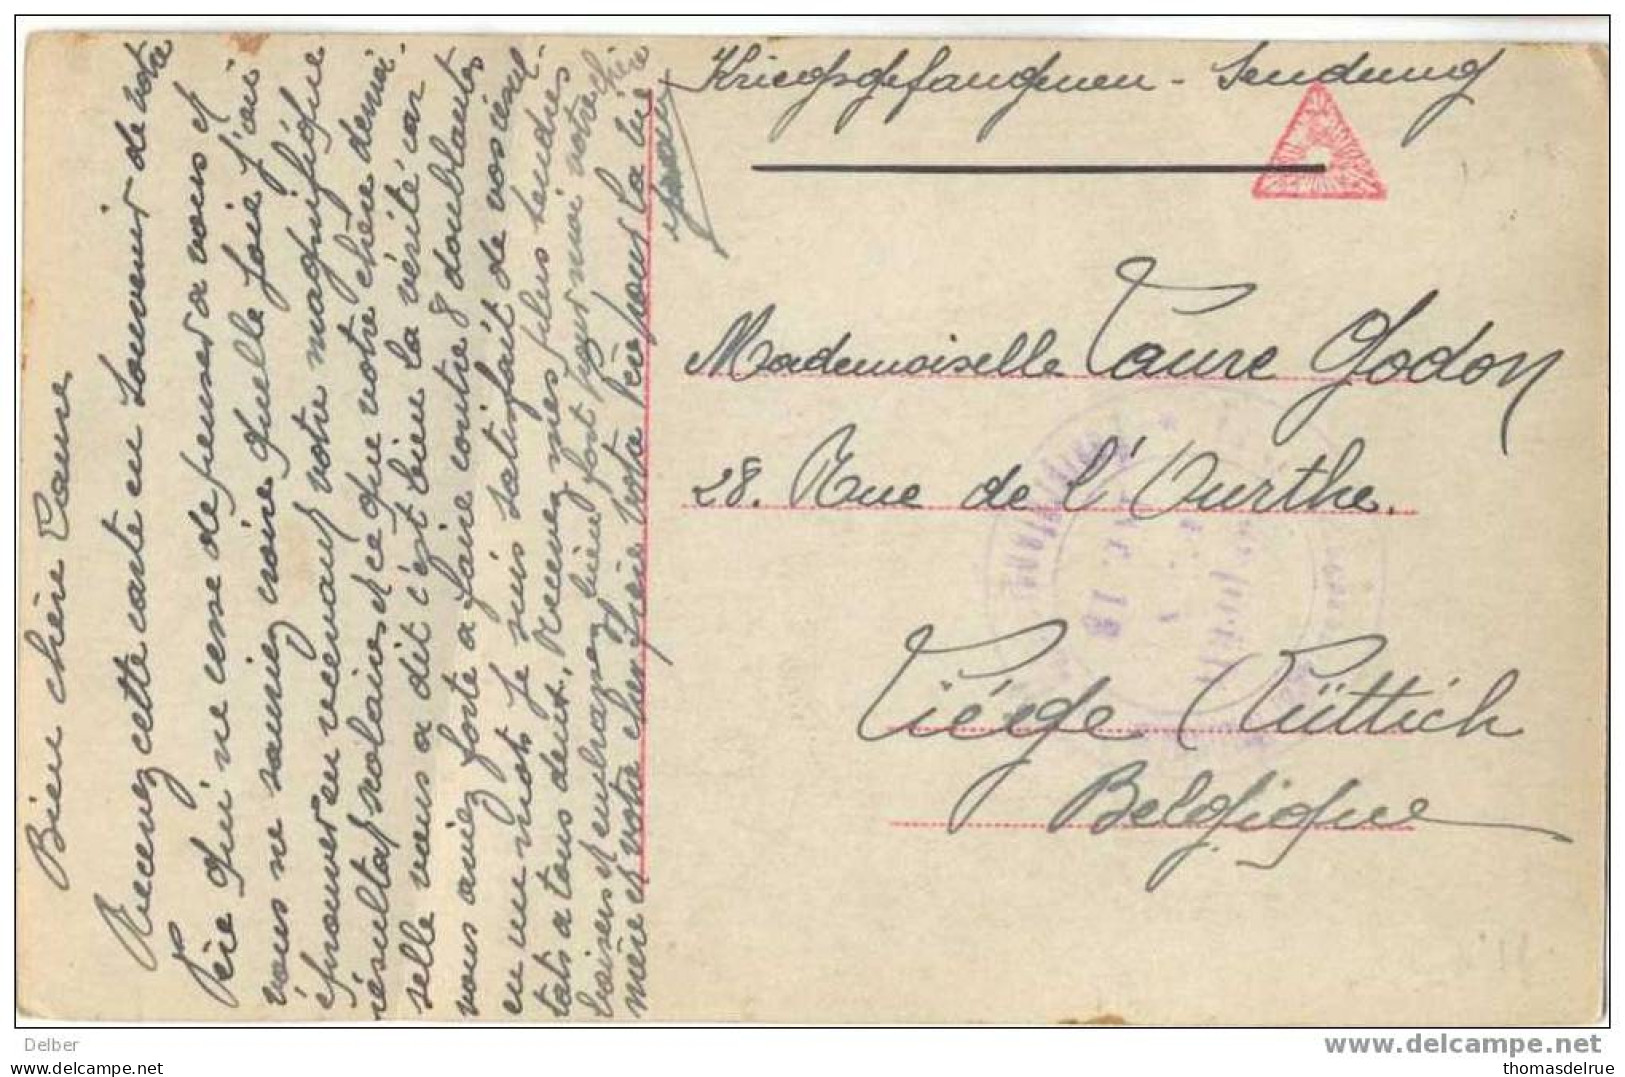 Kriegsgefangenen - Sendung
Mademoiselle Laure Godon
28. Rue de l'Ourthe.
Liége Lüttich
Belgique
Bien chère Laure
Recevez cette carte en souvenir de votre
Père qui ne cesse de penser a vous et
vous ne sauriez croire quelle joie j'ai
éprouver en recevant votre magnifique
résultat scolaires et ce que votre chère demoi-
selle vous a dit c'est bien la vérité car
vous aviez forte a faire contre 8 doublantes
en un mots je suis satisfait de vos resul-
tats a tous deux. Recevez mes plus tendres
baisers et embrassez bien fort pour moi votre chère
mère et votre cher frère votre Père pour la vie
Delber
www.delcampe.net
thomasdelrue